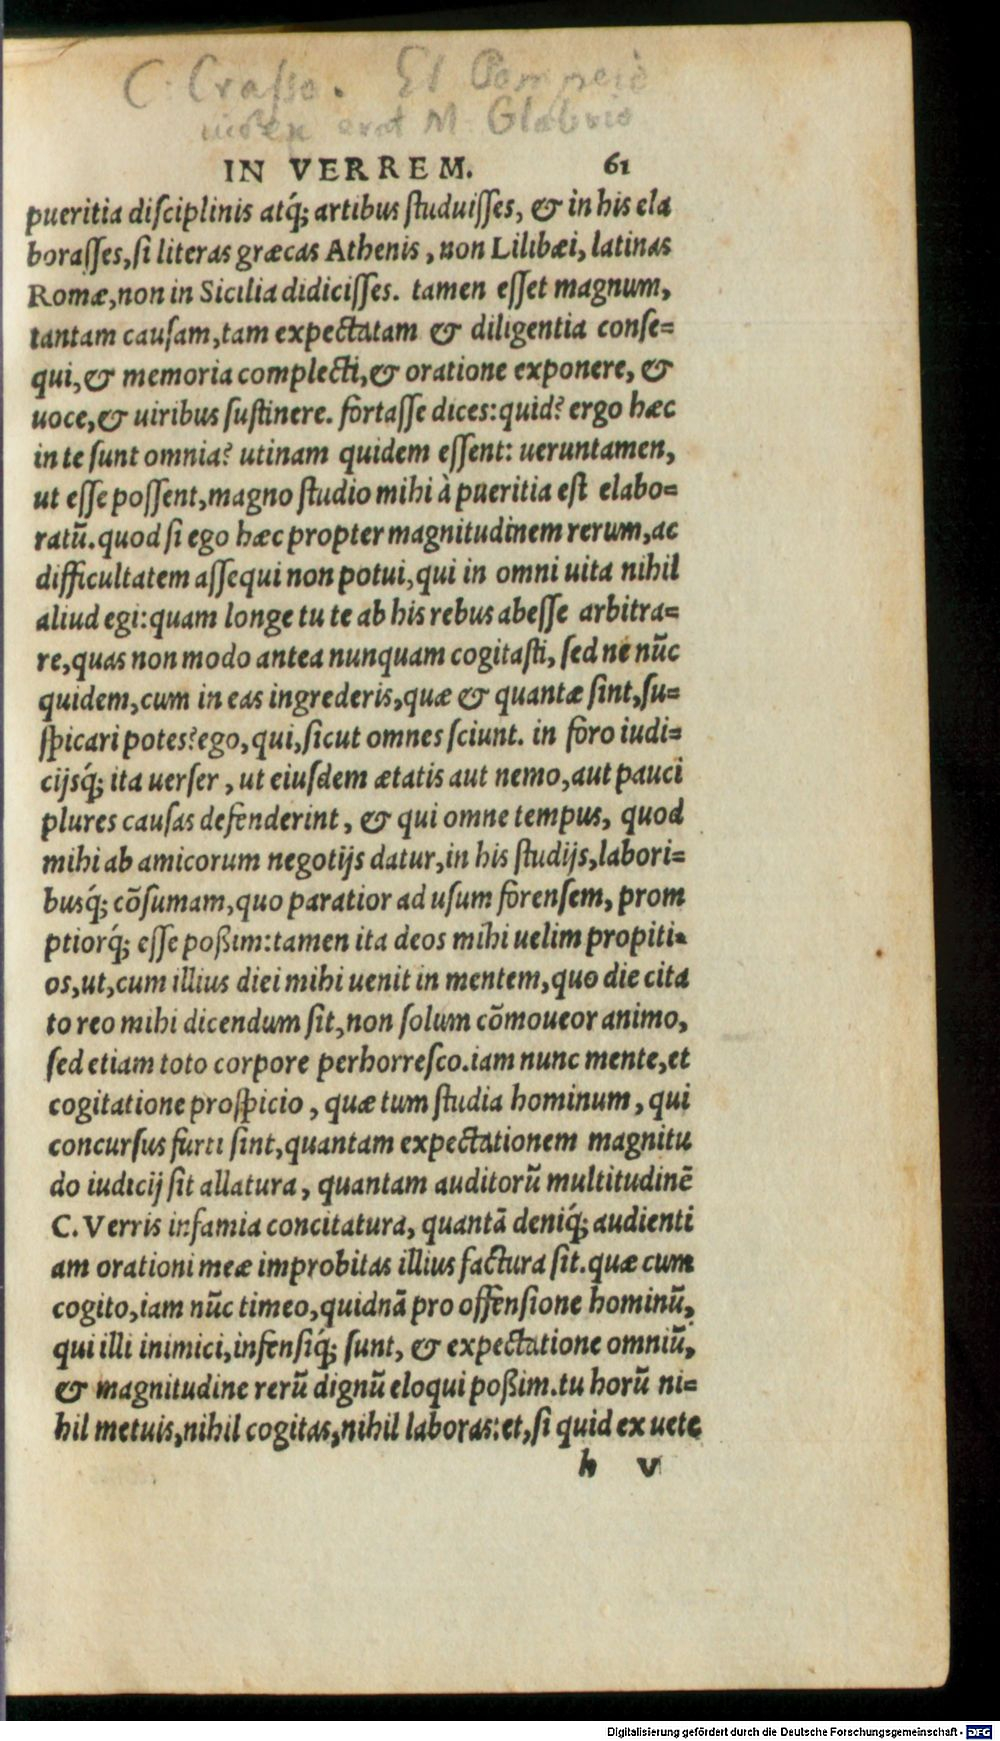 C. Crasso. Et Pompeio
iudex erat M Glabrio
IN VERREM. 61
pueritia disciplinis atq́; artibus studuisses, & in his ela
borasses, si literas græcas Athenis, non Lilibæi, latinas
Romæ, non in Sicilia didicisses. tamen esset magnum,
tantam causam, tam expectatam & diligentia conse=
qui, & memoria complecti, & oratione exponere, &
uoce, & uiribus sustinere. fortasse dices: quid? ergo hæc
in te sunt omnia? utinam quidem essent: ueruntamen,
ut esse possent, magno studio mihi à pueritia est elabo=
ratū. quod si ego hæc propter magnitudinem rerum, ac
difficultatem assequi non potui, qui in omni uita nihil
aliud egi: quam longe tu te ab his rebus abesse arbitra=
re, quas non modo antea nunquam cogitasti, sed ne nūc
quidem, cum in eas ingrederis, quæ & quantæ sint, su=
spicari potes? ego, qui, sicut omnes sciunt. in foro iudi=
cijsq́; ita uerser, ut eiusdem ætatis aut nemo, aut pauci
plures causas defenderint, & qui omne tempus, quod
mihi ab amicorum negotijs datur, in his studijs, labori=
busq́; cōsumam, quo paratior ad usum forensem, prom
ptiorq́; esse poßim: tamen ita deos mihi uelim propiti=
os, ut, cum illius diei mihi uenit in mentem, quo die cita
to reo mihi dicendum sit, non solum cōmoueor animo,
sed etiam toto corpore perhorresco. iam nunc mente, et
cogitatione prospicio, quæ tum studia hominum, qui
concursus furti sint, quantam expectationem magnitu
do iudicij sit allatura, quantam auditorū multitudinē
C. Verris infamia concitatura, quantā deniq́; audienti
am orationi meæ improbitas illius factura sit. quæ cum
cogito, iam nūc timeo, quidnā pro offensione hominū,
qui illi inimici, infensiq́; sunt, & expectatione omniū,
& magnitudine rerū dignū eloqui poßim. tu horū ni=
hil metuis, nihil cogitas, nihil laboras: et, si quid ex uete
h v
Digitalisierung gefördert durch die Deutsche Forschungsgemeinschaft - DFG